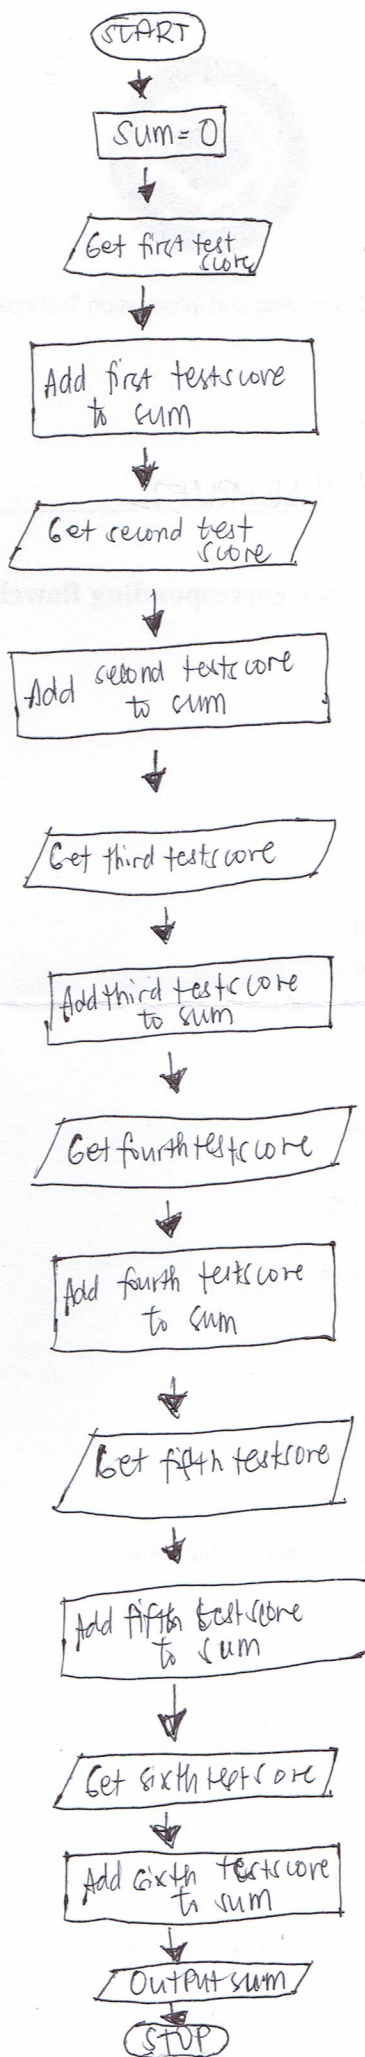 START
Sum = 0
Get first test
score
Add first testscore
to sum
Get second test
score
Add second testscore
to sum
Get third testscore
Add third testscore
to sum
Get fourth testscore
Add fourth testscore
to sum
Get fifth testscore
Add fifth testscore
to sum
Get sixth testscore
Add sixth testscore
to sum
Output sum
STOP